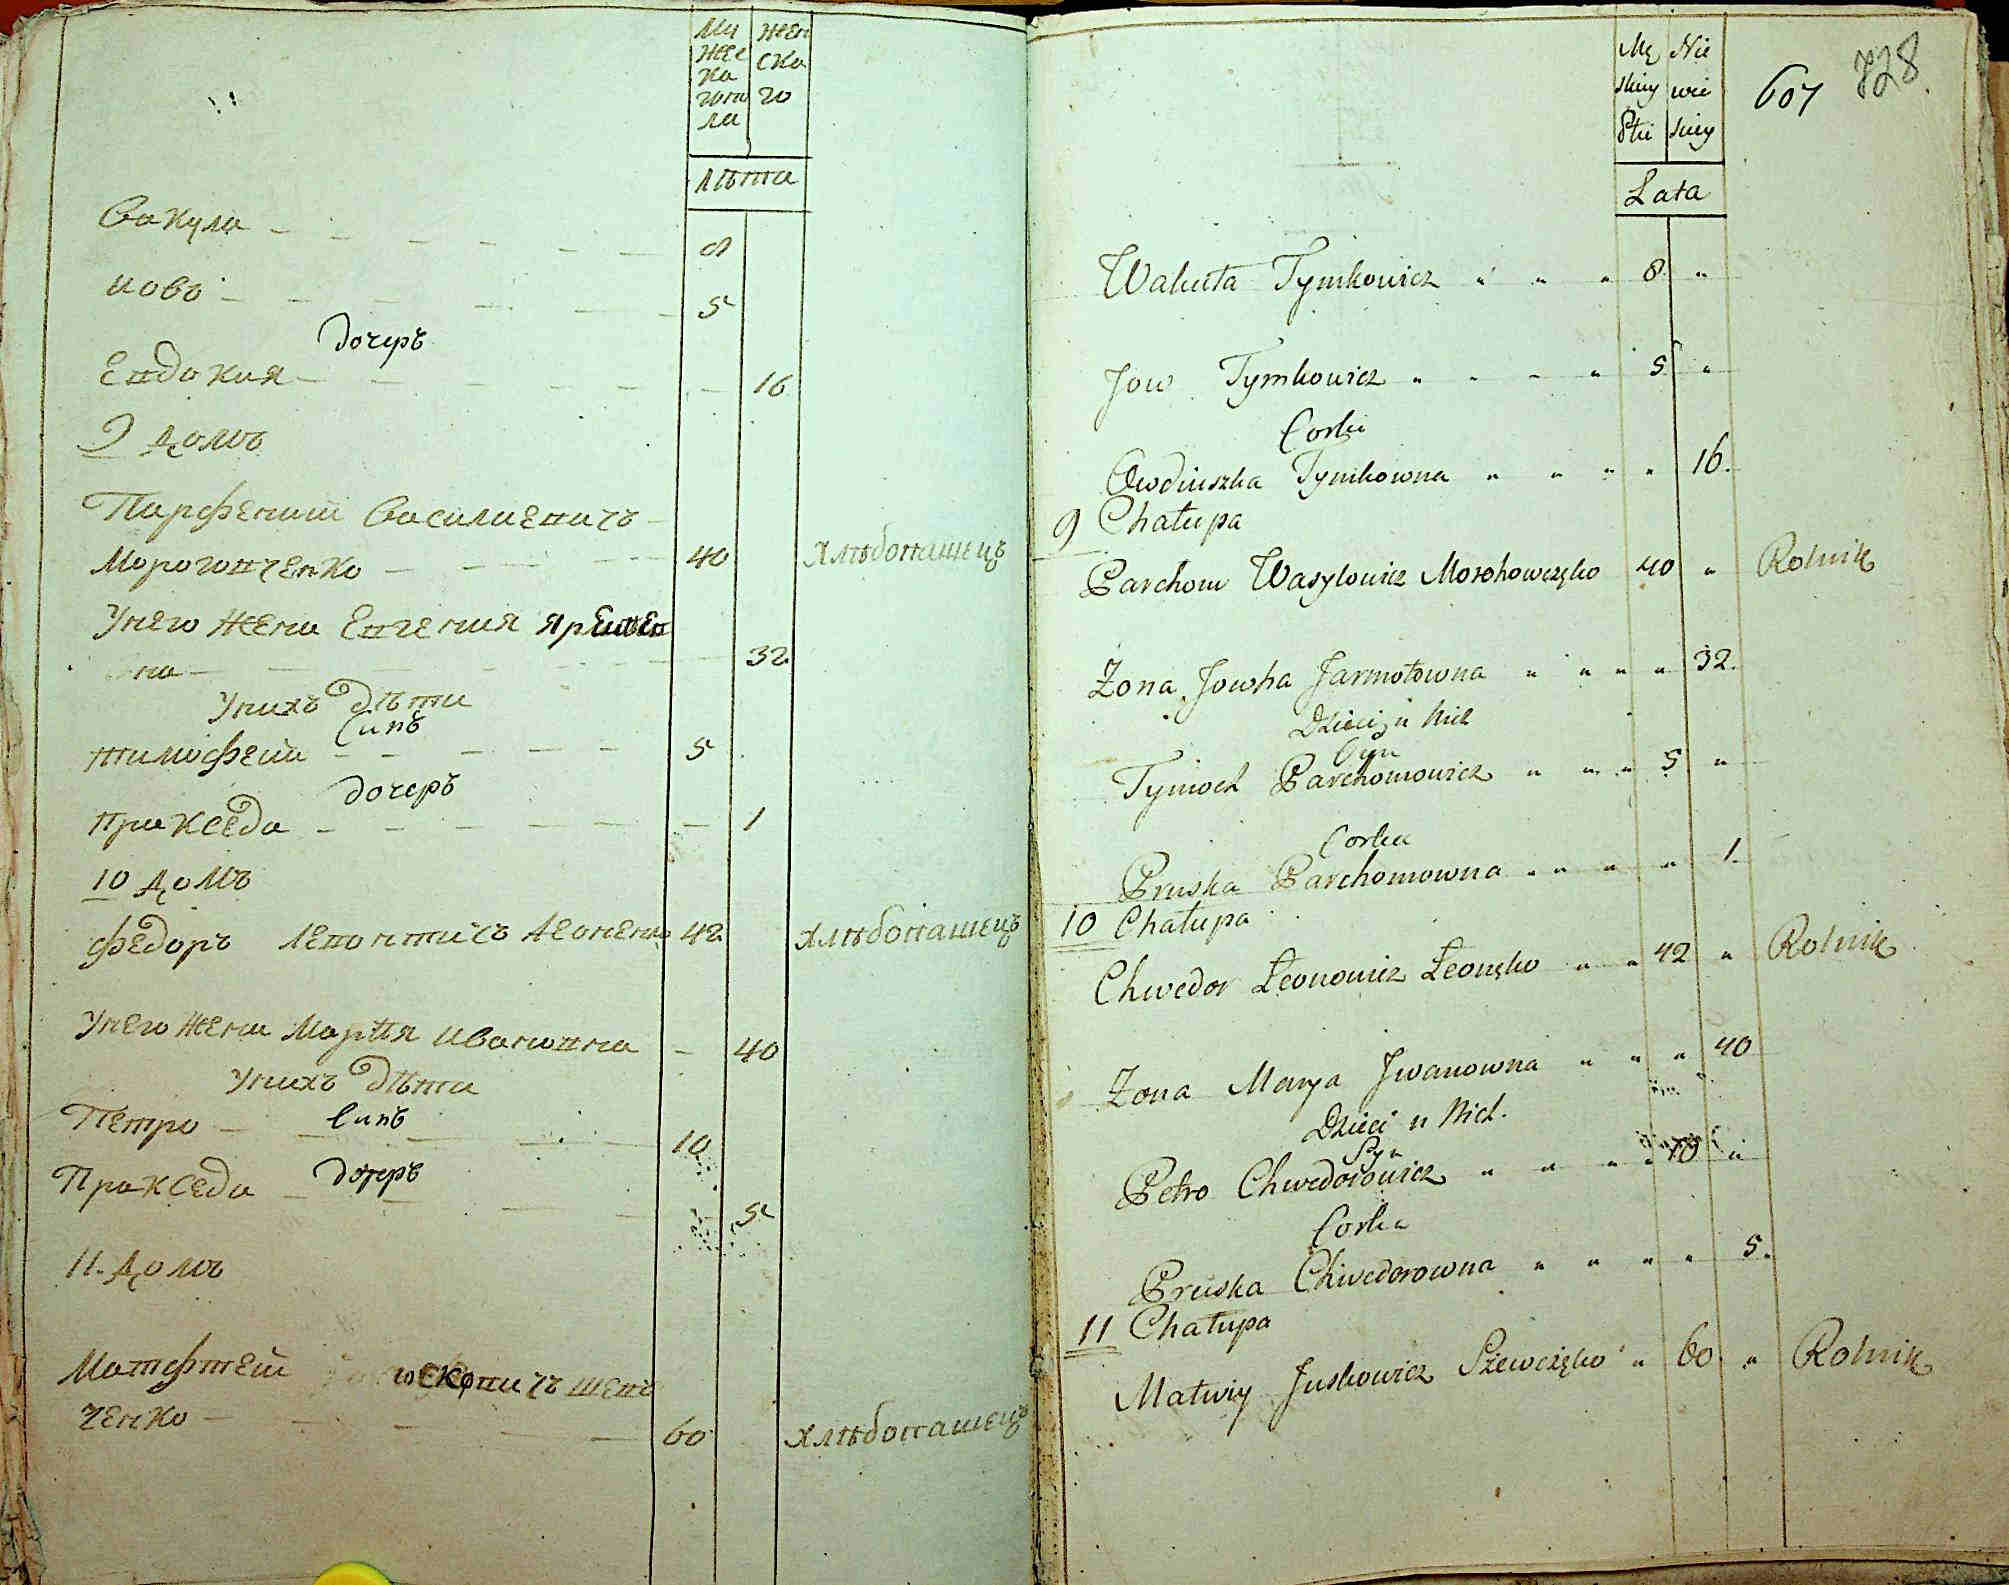 Му жен
жес ска
ка го
гопо
ла
лѣта
Вакула 8
Иовъ 5
дочерь
Евдокия 16
9 домъ
Парфений Василиевичъ
Мороговченко 40 хлѣбопашецъ
У него жена Евгения
вна 32
У нихъ дѣти
Синъ
тимофей 5
дочерь
Праксeда 1
10 домъ
Федоръ Левонтичъ Леоненко 42 хлѣбопашецъ
У него жена Мария Ивановна 40
У нихъ дѣти
Петро Синъ 10
Праксeда дочерь 5
11 домъ
Матфтей шев
ченко 60 хлѣбопашецъ
Mę Nie
skiey wie
Płci skiey
607 728
Lata
Wakuła Tymkowicz 8 "
Jow Tymkowicz 5 "
Corki
Owdiuszka Tymkowna 16.
9 Chałupa
Parchom Wasylowicz Morohowczęko 40 " Rolnik
Żona Jowha Jarmołowna 32.
Dzieci u Nich
Syn
Tymoch Parchomowicz 5 "
Corka
Pruska Parchomowna 1.
10 Chałupa
Chwedor Leonowicz Leonęko 42 " Rolnik
Żona Marya Jwanowna 40
Dzieci u Nich.
Syn
Petro Chwedorowicz 10 "
Corka
Pruska Chwedorowna 5.
11 Chałupa
Matwiy Juskowicz Szewczęko 60 " Rolnik